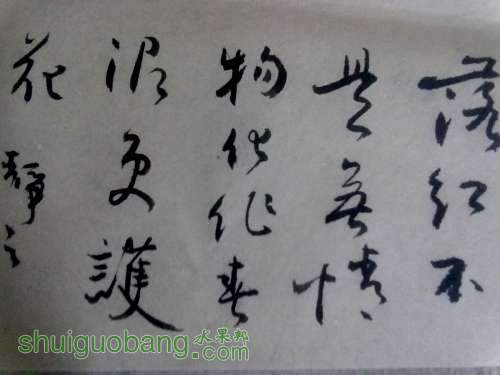 落红不
是無情
物化作春
泥更護
花
靜之
水果邦
shuiguobang.com